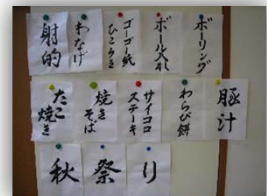 射的
わなげ
ゴーゴー紙
ひこうき
ボール入れ
ボーリング
たこ
焼き
焼き
そば
サイコロ
ステーキ
わらび餅
豚汁
秋祭り